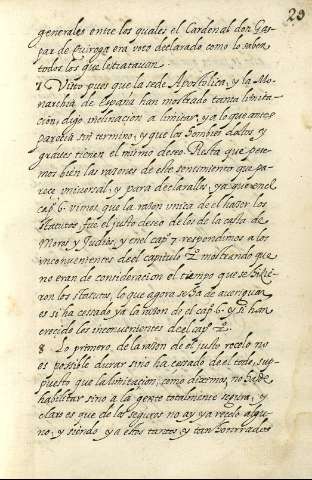 29
generales entre los quales el Cardenal don Gas-
par de Quiroga era voto declarado como lo saben
todos los que le tratauan.
7 Visto pues que la sede Apostolica, y la Mo-
narchia de España han mostrado tanta limita-
cion, digo inclinacion a limitar, y a lo que antes
parecia sin termino, y que los hombres doctos y
graues tienen el mismo deseo. Resta que pese-
mos bien las razones de este sentimiento que pa-
rece vniuersal, y para declarallas, ya que en el
cap. 6. vimos que la razon vnica de el hazer los
statutos, fue el justo deseo de los de la casta de
Moros y Judios, y en el cap. 7 respondimos a los
inconuenientes de el capitulo 2º mostrando que
no eran de consideracion el tiempo que se hizie-
ron los statutos, lo que agora se ha de aueriguar
es si ha cessado ya la razon de el cap. 6. y si han
crecido los inconuenientes de el cap. 2º.
8 Lo primero, de la razon de el justo recelo no
es possible durar sino ha cessado de el todo, sup-
puesto que la limitacion, como diximos, no ha de
habilitar sino a la gente totalmente segura, y
claro es que de los seguros no ay ya recelo algu-
no, y siendo ya estos tantos y tan honrrados